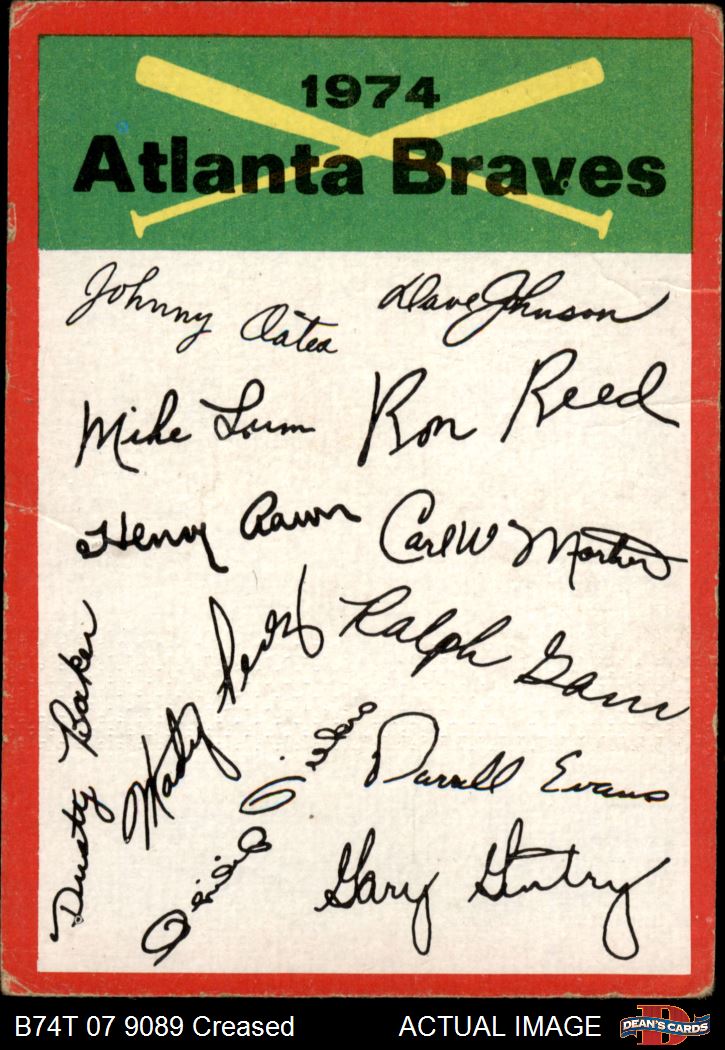 1974
Atlanta Braves
Johnny Oates
Dave Johnson
Mike Lum
Ron Reed
Henry Aaron
Carl W Morton
Ralph Garr
Marty Perez
Dusty Baker
Darrell Evans
Gary Gentry
B74T 07 9089 Creased
ACTUAL IMAGE
D
DEAN'S CARDS